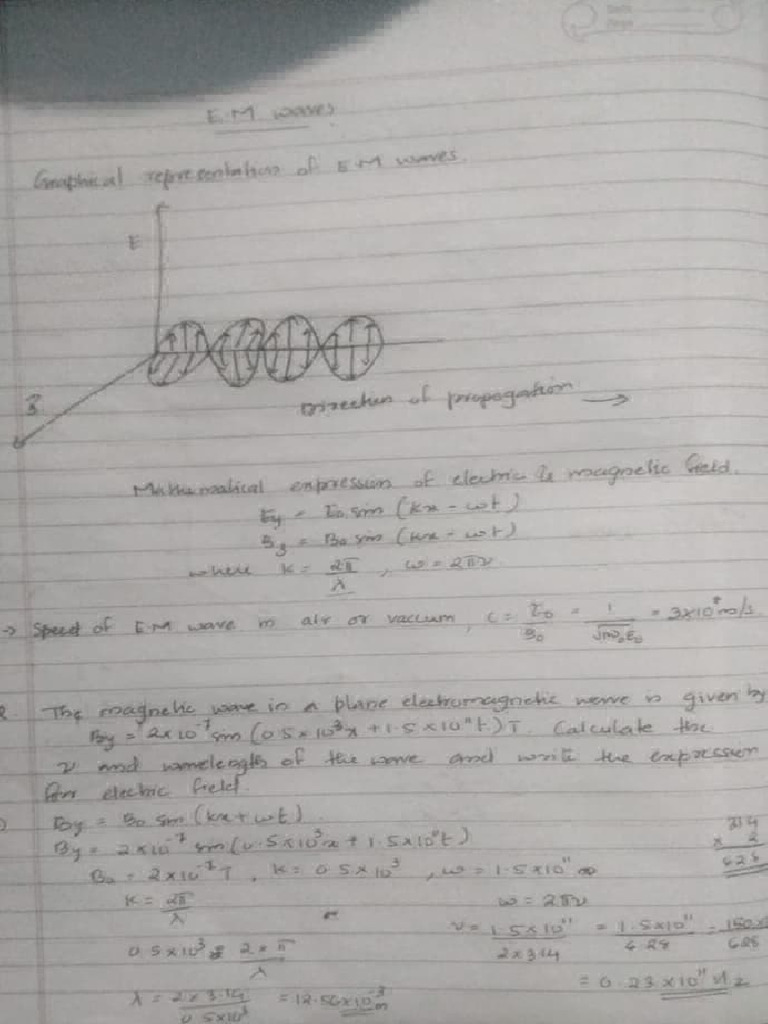 E.M waves
Graphical representation of EM waves.
E
B
Direction of propogation →
Mathematical expression of electric & magnetic field.
Ey = E0 sin (kx - ωt)
Bz = B0 sin (kx - ωt)
where K = 2π/λ , ω = 2πν
→ Speed of E.M wave in air or vaccum, c = E0/B0 = 1/√μ0ε0 = 3×10⁸ m/s
The magnetic wave in a plane electromagnetic wave is given by
By = 2×10⁻⁷ sin (0.5×10³x + 1.5×10¹¹t) T. Calculate the
ν and wavelength of the wave and write the expression
for electric field.
By = B0 sin (kx + ωt)
By = 2×10⁻⁷ sin (0.5×10³x + 1.5×10¹¹t)
B0 = 2×10⁻⁷ T, K = 0.5×10³, ω = 1.5×10¹¹
314
× 2
628
K = 2π/λ
ω = 2πν
0.5×10³ = 2×π/λ
ν = 1.5×10¹¹/2×3.14 = 1.5×10¹¹/6.28 =
λ = 2×3.14/0.5×10³ = 12.56×10⁻³ m
= 0.23×10¹¹ Hz